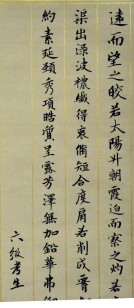 遠而望之皎若太陽升朝霞迫而察之灼若
渠出渌波襛纖得衷脩短合度肩若削成
約素延頸秀項皓質呈露芳澤無加鉛華弗
六級考生